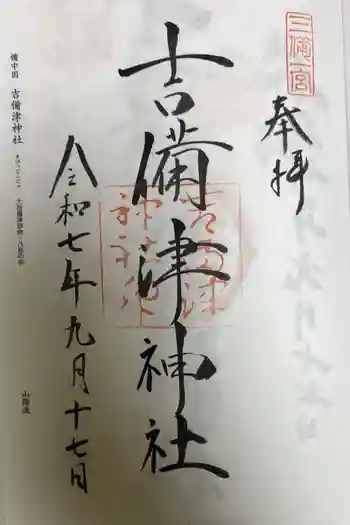 三備一宮
奉拝
吉備津神社
令和七年九月十七日
備中国 吉備津神社
山陽道